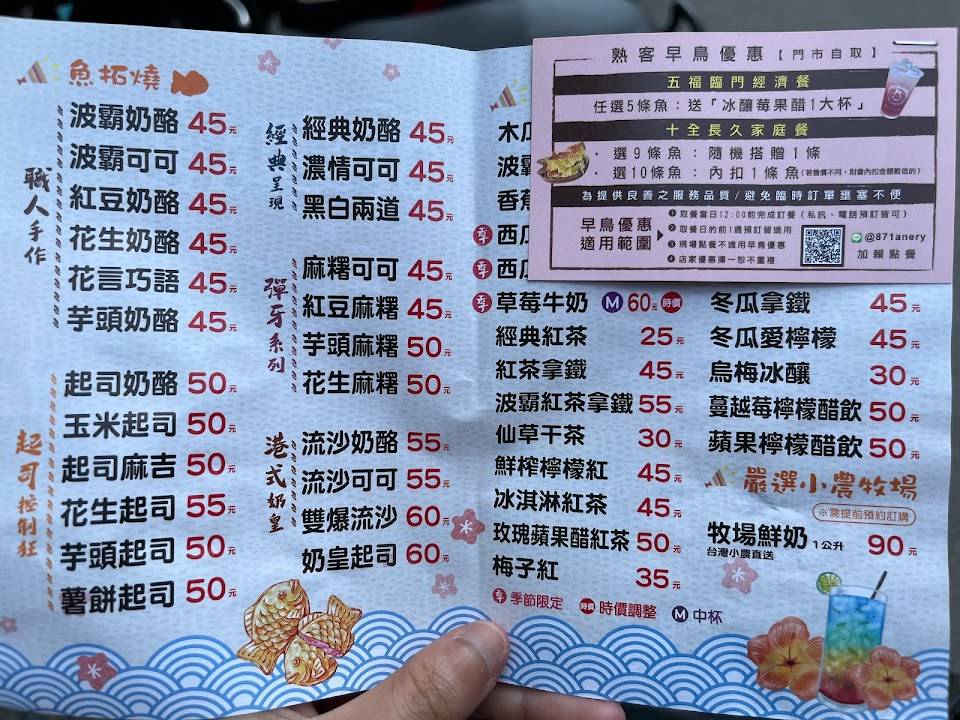 魚拓燒
職人手作
波霸奶酪 45元
波霸可可 45元
紅豆奶酪 45元
花生奶酪 45元
花言巧語 45元
芋頭奶酪 45元
起司控制狂
起司奶酪 50元
玉米起司 50元
起司麻吉 50元
花生起司 55元
芋頭起司 50元
薯餅起司 50元
經典呈現
經典奶酪 45元
濃情可可 45元
黑白兩道 45元
彈牙系列
麻糬可可 45元
紅豆麻糬 45元
芋頭麻糬 50元
花生麻糬 50元
港式奶皇
流沙奶酪 55元
流沙可可 55元
雙爆流沙 60元
奶皇起司 60元
木瓜
波霸
香蕉
季 西瓜
季 西瓜
季 草莓牛奶 M 60元 時價
經典紅茶 25元
紅茶拿鐵 45元
波霸紅茶拿鐵 55元
仙草干茶 30元
鮮榨檸檬紅 45元
冰淇淋紅茶 45元
玫瑰蘋果醋紅茶 50元
梅子紅 35元
季 季節限定 時價 時價調整 M 中杯
冬瓜拿鐵 45元
冬瓜愛檸檬 45元
烏梅冰釀 30元
蔓越莓檸檬醋飲 50元
蘋果檸檬醋飲 50元
嚴選小農牧場
※需提前預約訂購
牧場鮮奶 1公升 90元
台灣小農直送
熟客早鳥優惠【門市自取】
五福臨門經濟餐
任選5條魚：送「冰釀莓果醋1大杯」
十全長久家庭餐
・選9條魚：隨機搭贈1條
・選10條魚：內扣1條魚(若售價不同，則會內扣金額較低的)
為提供良善之服務品質/避免臨時訂單壅塞不便
早鳥優惠適用範圍
1 取餐當日12:00前完成訂餐（私訊、電話預訂皆可）
2 取餐日的前1週預訂皆適用
3 現場點餐不適用早鳥優惠
4 店家優惠擇一恕不重複
@871anery
加賴點餐